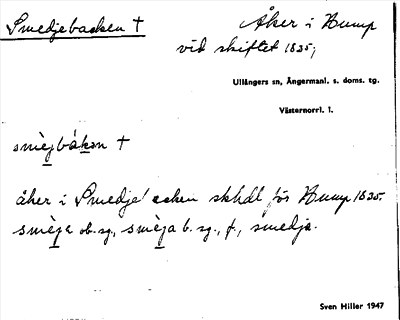 Smedjebacken †
Åker i Hump
vid skiftet 1835;
Ullångers sn, Ångermanl. s. doms. tg.
Västernorrl. l.
smèg̱bák̠an †
åker i Smedje acken skhdl för Hump 1835.
smèg̱e ob. sg., smèg̱a b. sg., f., smedja.
Sven Hiller 1947